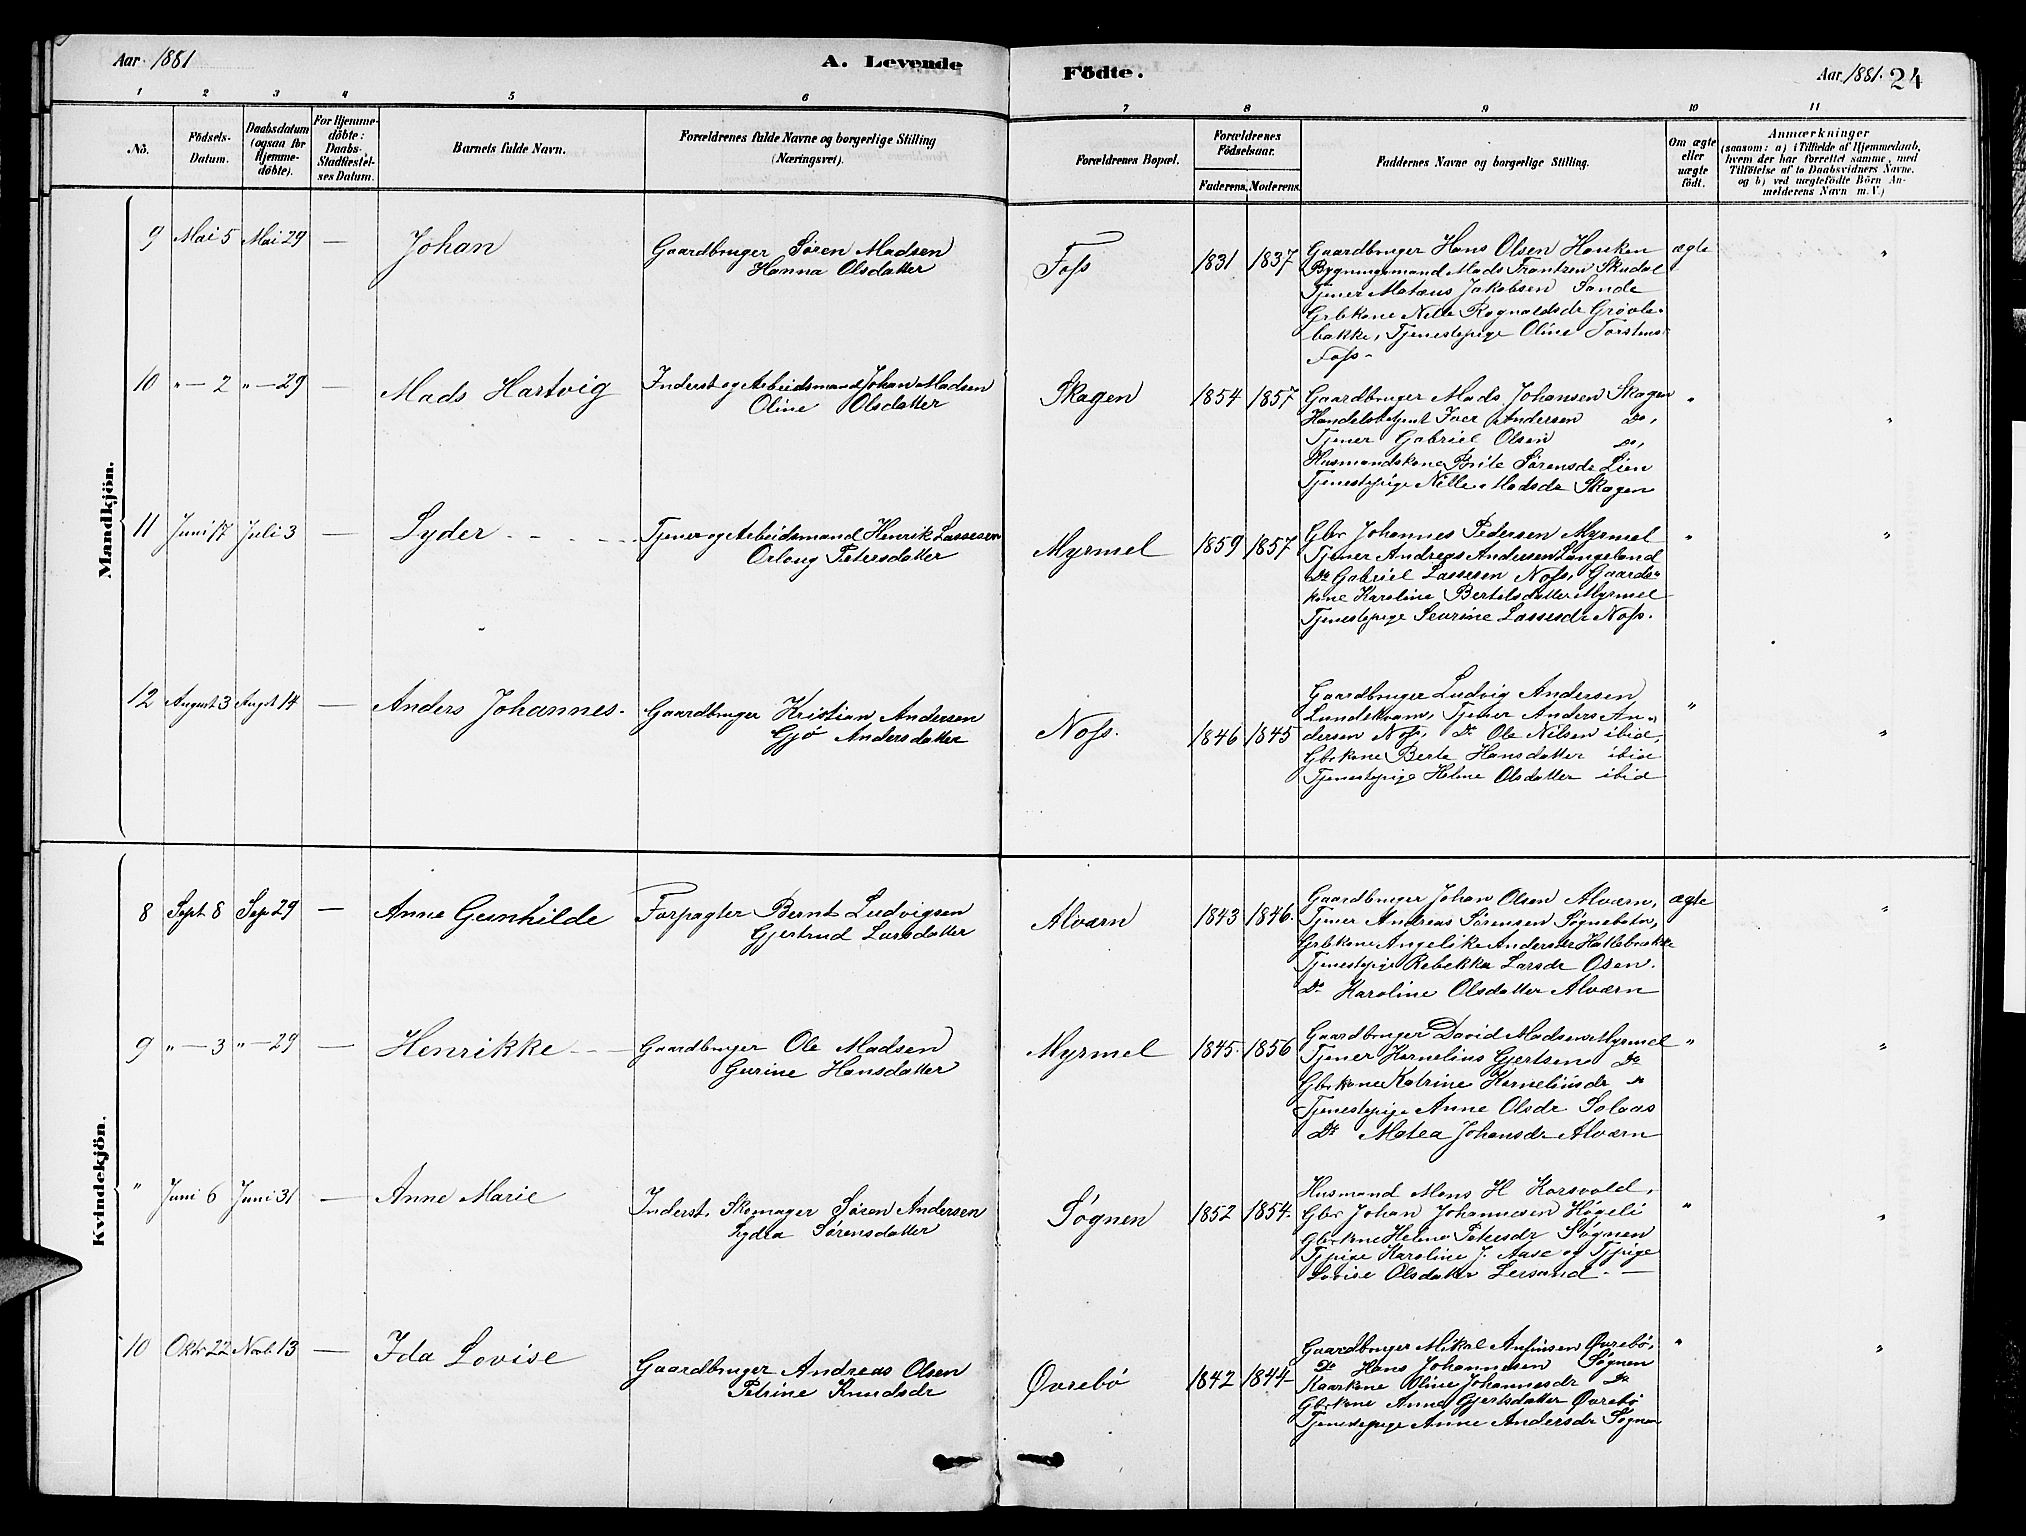 Aar 1881
A. Levende
Födte.
Aar 1881.
24
1 2 3 4 5 6 7 8 9 10 11
No.
Födsels-
Datum.
Daabsdatum
(ogsaa for
Hjemme-
döbte).
For Hjemme-
döbte:
Daabs-
Stadfæstel-
ses Datum.
Barnets fulde Navn.
Forældrenes fulde Navne og borgerlige Stilling
(Næringsvei).
Forældrenes Bopæl.
Forældrenes
Födselsaar.
Faderens. Moderens.
Faddernes Navne og borgerlige Stilling.
Om ægte
eller
uægte
födt.
Anmærkninger
(saasom: a) i Tilfælde af Hjemmedaab,
hvem der har forrettet samme, med
Tilföielse af to Daabsvidners Navne.
og b) ved uægtefödte Börn An-
melderens Navn m. V.)
Mandkjön.
9 Mai 5 Mai 29 — Johan
Gaardbruger Søren Madsen
Hanna Olsdatter
Foss 1831 1837
Gaardbruger Hans Olsen Hauken
Bygningsmand Mads Frantzen Skudal
Tjener Matæus Jakobsen Sande
Grbkone Nille Ragnaldsdr Grövle-
bakke, Tjenestepige Oline Torstens
Foss-
ægte "
10 "—2 "—29 — Mads Hartvig
Inderst og Arbeidsmand Johan Madsen
Oline Olsdatter
Skagen 1854 1857
Gaardbruger Mads Johansen Skagen
Handelsbetjent Iver Andersen Do,
Tjener Gabriel Olsen Do,
Husmandskone Brite Sørensdr Lien
Tjenestepige Nille Madsdr Skagen
" "
11 Juni 17 Juli 3 — Syder
Tjener og Arbeidsmand Henrik Lassesen
Orloug Petersdatter
Myrmel 1859 1857
Gbr Johannes Pedersen Myrmel
Tjener Andreas Andersen Langeland
Do Gabriel Lassesen Noss, Gaard-
kone Karoline Bertelsdatter Myrmel
Tjenestepige Severine Lassesdr Noss.
" "
12 August 3 Augst 14 — Anders Johannes-
Gaardbruger Kristian Andersen
Gjø Andersdatter
Noss. 1846 1845
Gaardbruger Ludvig Andersen
Lundekvam, Tjener Anders An-
dersen Noss, Do Ole Nilsen ibid,
Gbrkone Berte Hansdatter ibid
Tjenestepige Helene Olsdatter ibid
" "
Kvindekjön.
8 Sept 8 Sep 29 — Anne Gunhilde
Forpagter Bernt Ludvigsen
Gjertrud Larsdatter
Alværn 1843 1846.
Gaardbruger Johan Olsen Alværn,
Tjener Andreas Sørensen Søgnebotn,
Grbkone Angelike Andersdr Hatlebrekke
Tjenestepige Rebekka Larsdr Osen.
Do Karoline Olsdatter Alværn
ægte "
9 "—3 "—29 — Henrikke
Gaardbruger Ole Madsen
Gurine Hansdatter
Myrmel 1845. 1856
Gaardbruger David Madsen Myrmel
Tjener Kornelius Gjertsen Do
Gbrkone Katrine Korneliusdr Do
Tjenestepige Anne Olsdr Solaas
Do Matea Johansdr Alværn
" "
" Juni 6 Juni 31 — Anne Marie
Inderst, Skomager Søren Andersen
Lydia Sørensdatter
Søgnen 1852 1854.
Husmand Mons H Korsvold,
Gbr Johan Johannesen Høgeli
Gbrkone Helene Petersdr Søgnen
Tjpige Karoline J. Aase og Tjpige
Lovise Olsdatter Leirsand. —
" "
10 Oktr 22 Novb. 13 — Ida Lovise
Gaardbruger Andreas Olsen
Petrine Knudsdr
Øvrebø 1842 1844
Gaardbruger Mikal Anfinsen Øvrebø,
Do Hans Johannesen Søgnen
Kaarkone Oline Johannesdr Do
Gbrkone Anne Gjertsdatter Øvrebø
Tjenestepige Anne Andersdr Søgnen
" "